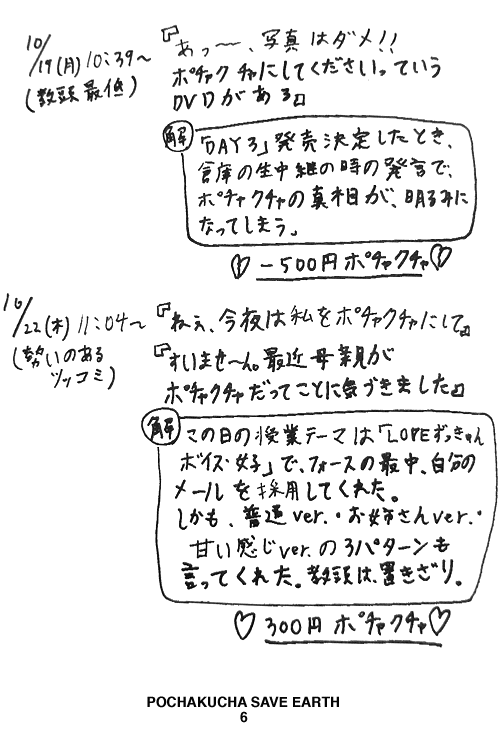 10/19(月)10:39〜
(教頭最低)
『あっ〜、写真はダメ!!
ポチャクチャにしてくださいっていう
DVDがある』
解
「DAY3」発売決定したとき、
倉庫の生中継の時の発言で、
ポチャクチャの真相が、明るみに
なってしまう。
-500円ポチャクチャ
10/22(木)11:04〜
(勢いのある
ツッコミ)
『ねぇ、今夜は私をポチャクチャにして』
『すいませ〜ん。最近母親が
ポチャクチャだってことに気づきました』
解
この日の授業テーマは「LOPEずっきゅん
ボイス・女子」で、フォースの最中、自分の
メールを採用してくれた。
しかも、普通ver.・お姉さんver.・
甘い感じver.の3パターンも
言ってくれた。教頭は、置きざり。
300円ポチャクチャ
POCHAKUCHA SAVE EARTH
6